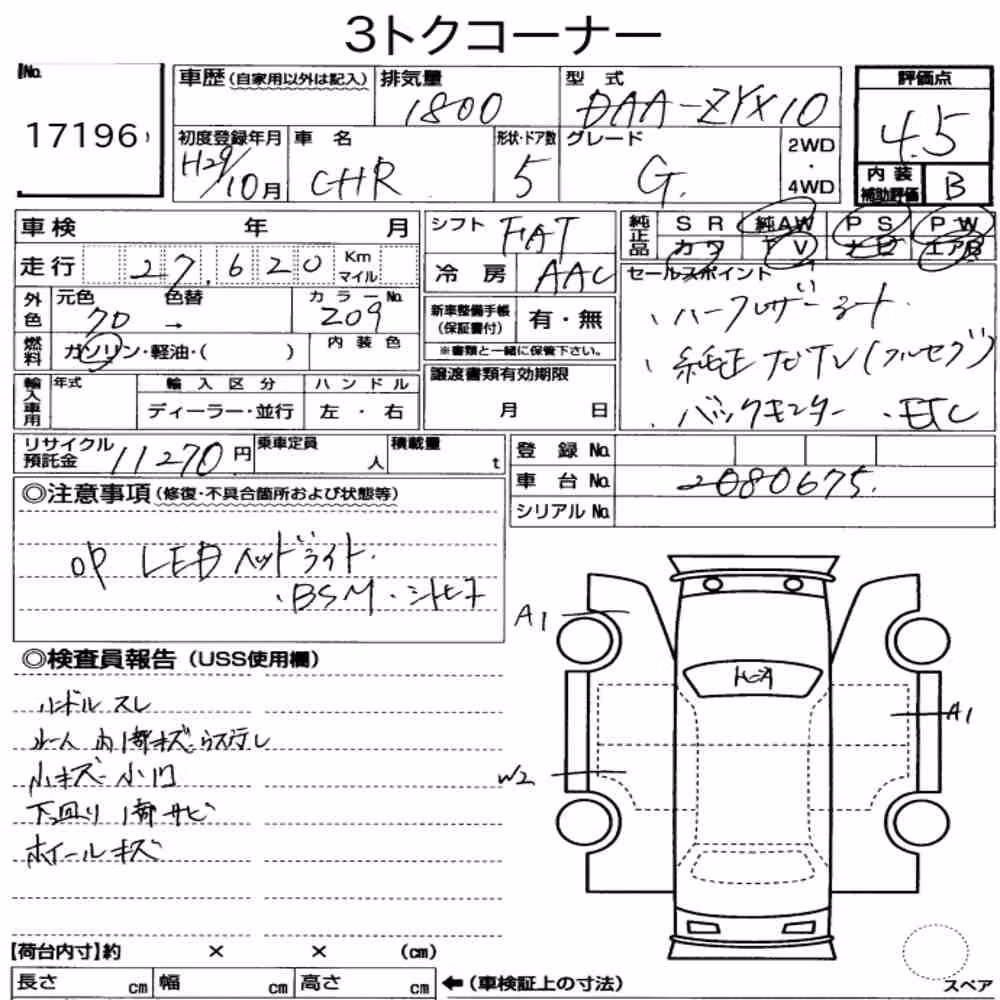 3トクコーナー
No.
17196
車歴 (自家用以外は記入)
排気量
1800
型式
DAA-ZYX10
評価点
4.5
初度登録年月
H29/10月
車名
CHR
形状・ドア数
5
グレード
G.
2WD
・
4WD
内装
補助評価
B
車検 年 月
走行 27.620 Km
マイル
シフト FAT
冷房 AAC
純正品
SR 純AW PS PW
カワ TV ナビ エアB
外色
元色 70 → 色替
カラーNo. 209
燃料
ガソリン・軽油・( )
内装色
新車整備手帳
(保証書付)
有・無
※書類と一緒に保管下さい。
セールスポイント
、ハーフレザーシート.
、純正ナビTV(フルセグ)
、バックモニター .ETC
輸入車用
年式
輸入区分
ディーラー・並行
ハンドル
左・右
譲渡書類有効期限
月 日
リサイクル
預託金
11270円
乗車定員
人
積載量
t
登録No.
車台No. 2080675.
シリアルNo.
◎注意事項 (修復・不具合箇所および状態等)
OP LEDヘッドライト.
.BSM.シートヒーター
◎検査員報告 (USS使用欄)
ハンドルスレ
ルーム内1部キズ.ウス汚レ
小キズ 小凹
下回り1部サビ
ホイールキズ
A1
A1
W2
【荷台内寸】約 × × (cm)
長さ cm 幅 cm 高さ cm ←(車検証上の寸法)
スペア